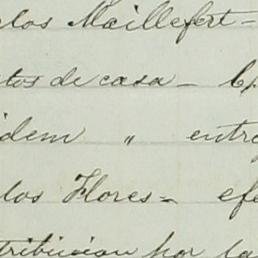 los Maillefert-
tos de casa -
idem " entre
los Flores - efe
tribucion por la